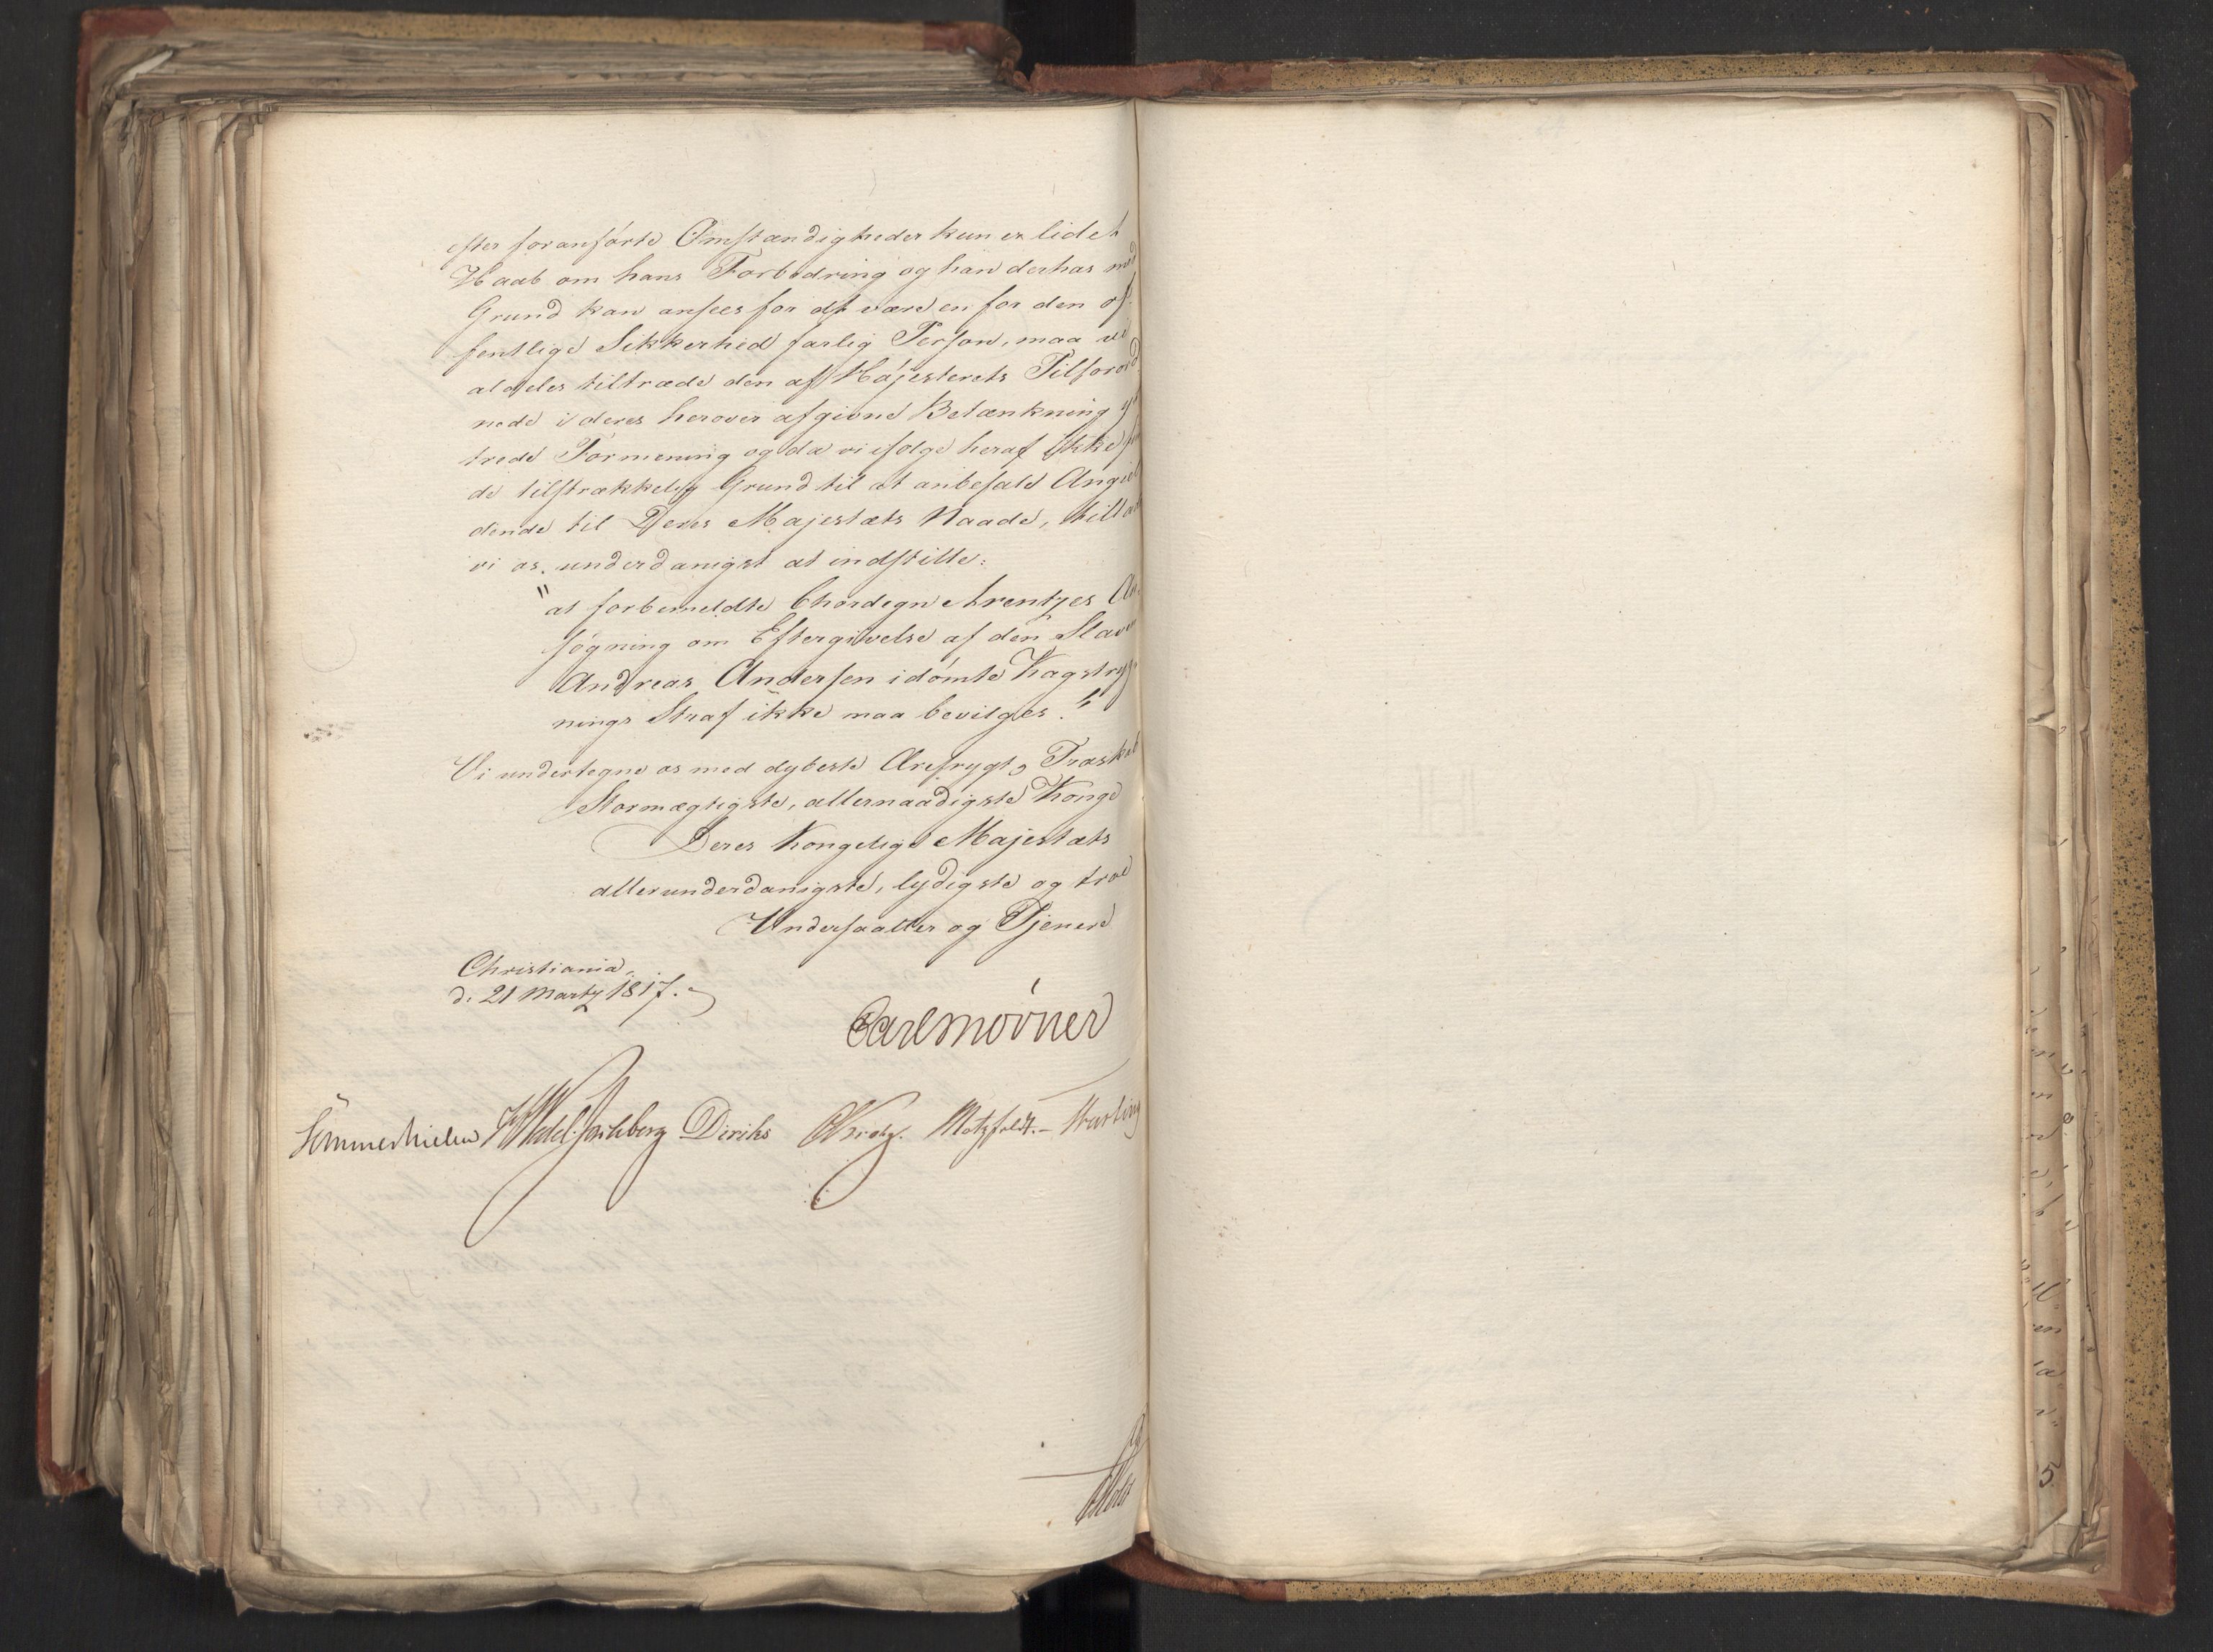 efter foranførte Omstændigheder kun er lidet
Haab om hans Forbedring og han derhos med
Grund kan ansees for at være en for den of¬
fentlige Sikkerhed farlig Person, maa vi
aldeles tiltræde den af Høiesterets Tilforord
nede i deres herover afgivne Betænkning yt
trede Formening og da vi ifølge heraf ikke fin
de tilstrækkelig Grund til at anbefale Angiel
dende til Deres Majestæts Naade, tillade
vi os underdanigst at indstille:
"at forbemeldte Chordegn Arentzes An¬
søgning om Eftergivelse af den Slaven
Andreas Andersen idømte Kagstryg¬
nings Straf ikke maa bevilges."
Vi undertegne os med dybeste Ærefrygt og Troskab
Stormægtigste, allernaadigste Konge
Deres Kongelige Majestæts
allerunderdanigste, lydigste og troe
Undersaatter og Tjenere
Christiania,
d: 21 Martz 1817.
Carl Mörner
Sommerhielm HWedel-Jarlsberg Diriks Krog. Motzfeldt.-